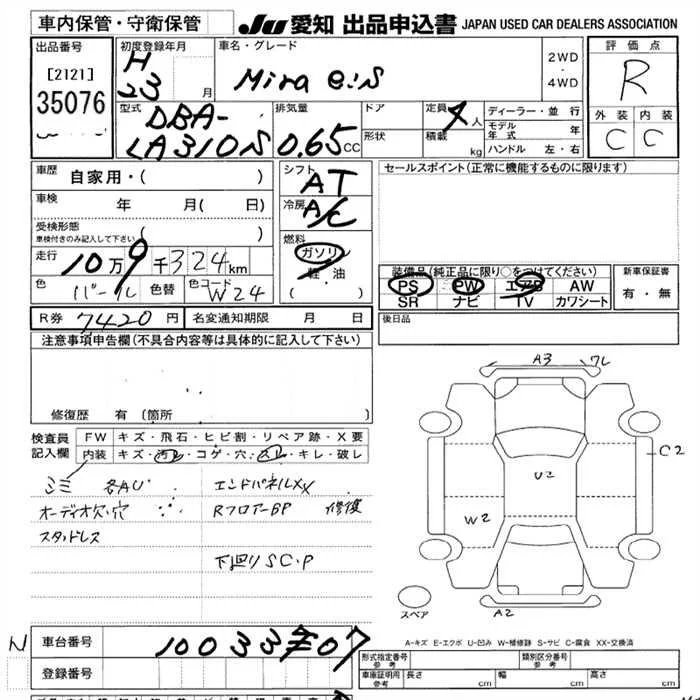 車内保管・守衛保管
JU 愛知 出品申込書 JAPAN USED CAR DEALERS ASSOCIATION
出品番号
[2121]
35076
初度登録年月
H
23 月
車名・グレード
Mira e:S
2WD
・
4WD
評価点
R
外装 内装
C C
型式
DBA-
LA310S
排気量
0.65 CC
ドア
形状
定員 4 人
積載 kg
ディーラー・並行
モデル
年式 年
ハンドル 左・右
車歴
自家用・( )
車検 年 月( 日)
受検形態
車検付きのみ記入して下さい
走行
10万9千324km
色 パール 色替 色コード W24
シフト
AT
冷房
A/C
燃料
ガソリン
軽油
( ・ )
セールスポイント(正常に機能するものに限ります)
装備品(純正品に限り○をつけてください)
PS PW エアB AW
SR ナビ TV カワシート
新車保証書
有・無
R券 7420円 名変通知期限 月 日
後日品
注意事項申告欄(不具合内容等は具体的に記入して下さい)
修復歴 有(箇所 )
検査員
記入欄
FW キズ・飛石・ヒビ割・リペア跡・X要
内装 キズ・汚れ・コゲ・穴・スレ・キレ・破レ
シミ 各AU エンドパネルXX
オーディオ欠・穴 RフロアーBP 修復
スタッドレス
下廻りSC・P
A3
C2
U2
W2
A2
スペア
A-キズ E-エクボ U-凹み W-補修跡 S-サビ C-腐食 XX-交換済
N
車台番号 1003307
登録番号
形式指定番号
参考
類別区分番号
参考
車庫証明用
参考
長さ cm 幅 cm 高さ cm